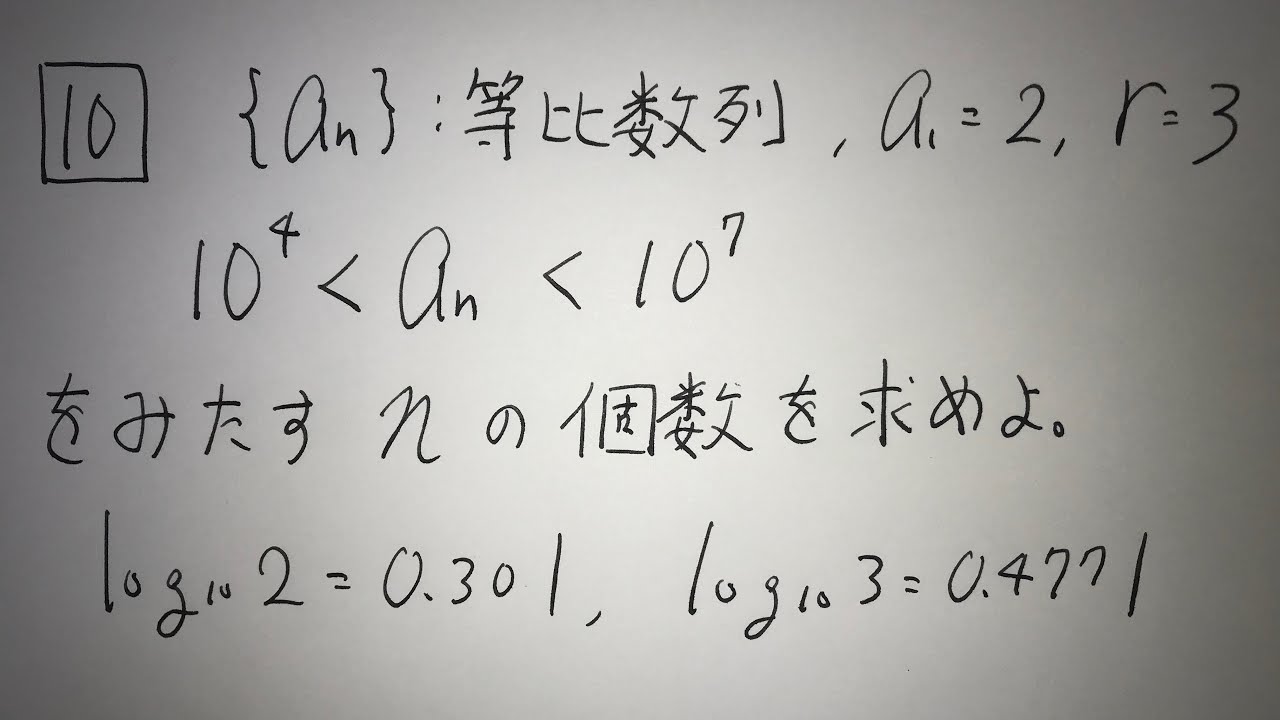 10 {aₙ}:等比数列, a₁=2, r=3
10⁴ < aₙ < 10⁷
をみたす n の個数を求めよ。
log₁₀2=0.301, log₁₀3=0.4771